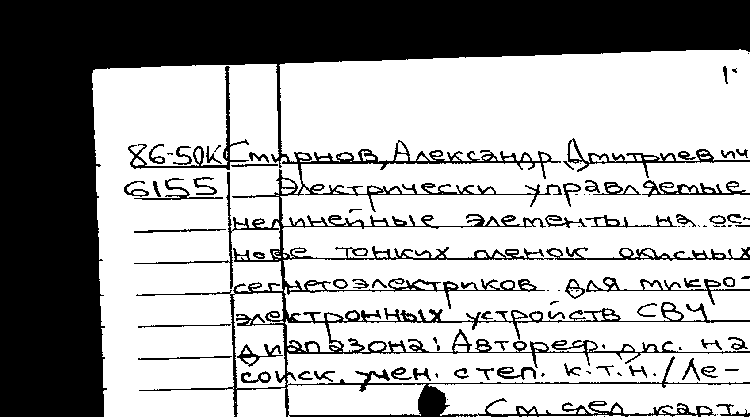 1.
86-50К Смирнов, Александр Дмитриевич
6155 Электрически управляемые
нелинейные элементы на ос-
нове тонких пленок окисных
сегнетоэлектриков для микро-
электронных устройств СВЧ
диапазона: Автореф. дис. на
соиск. учен. степ. к.т.н. / Ле-
См. след. карт.